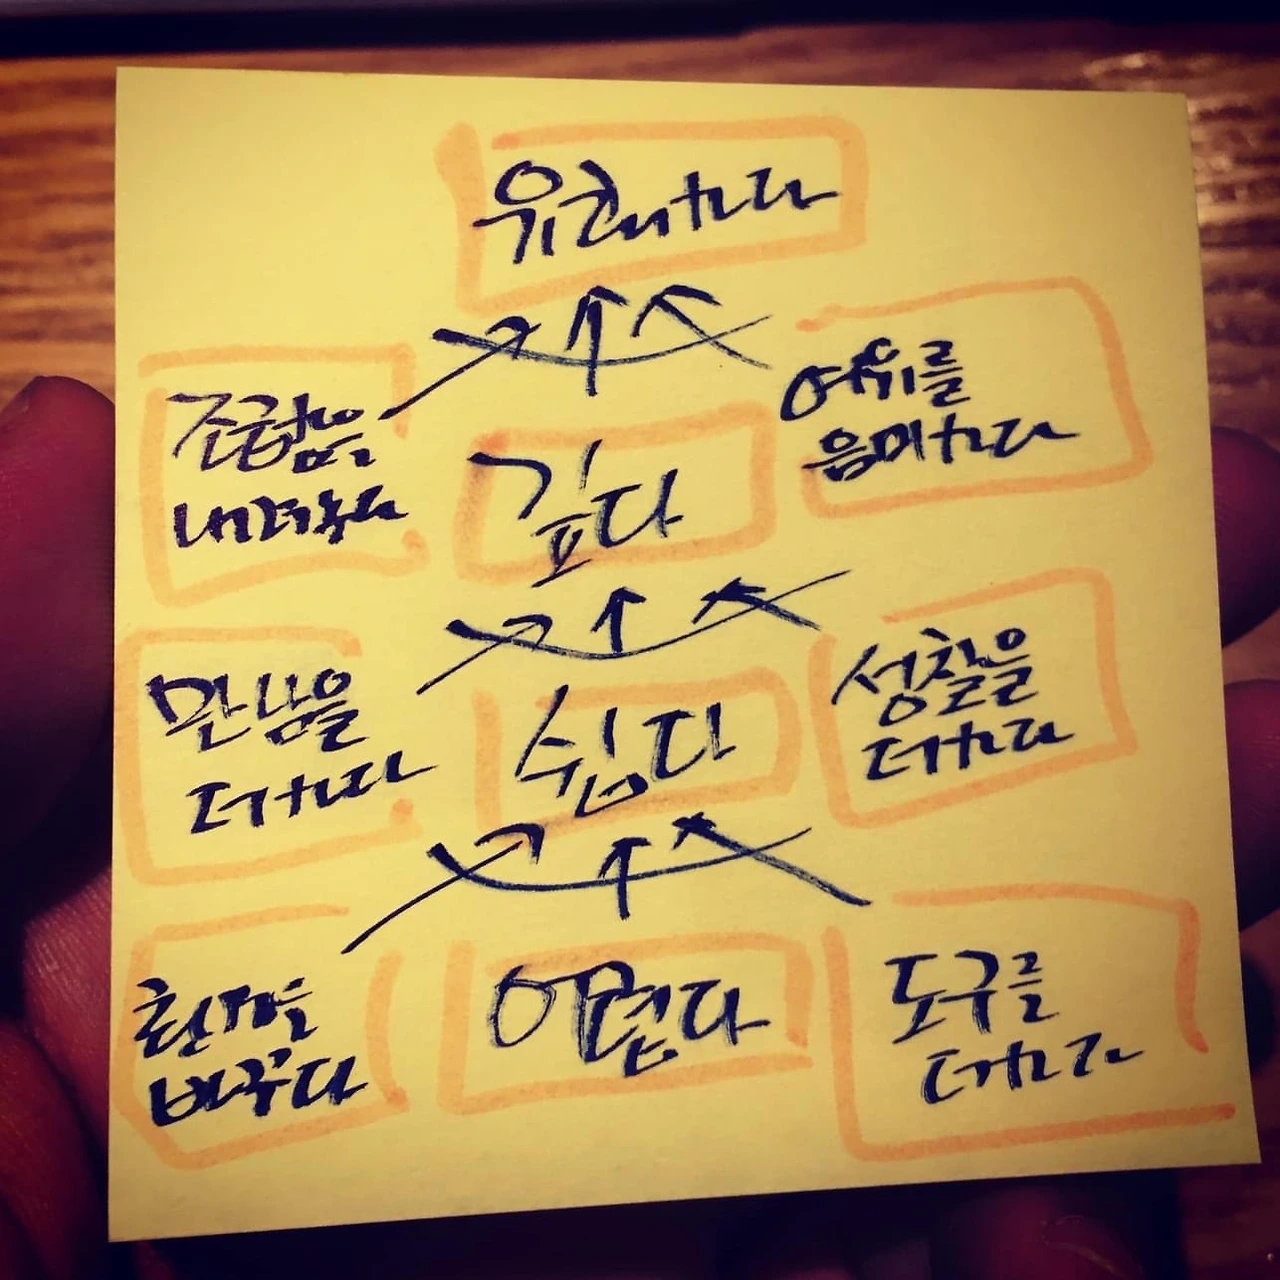 유쾌하다
조급함을
내려놓다
깊다
여유를
음미하다
만남을
더하다
쉽다
성찰을
더하다
환경을
바꾸다
어렵다
도구를
더하다